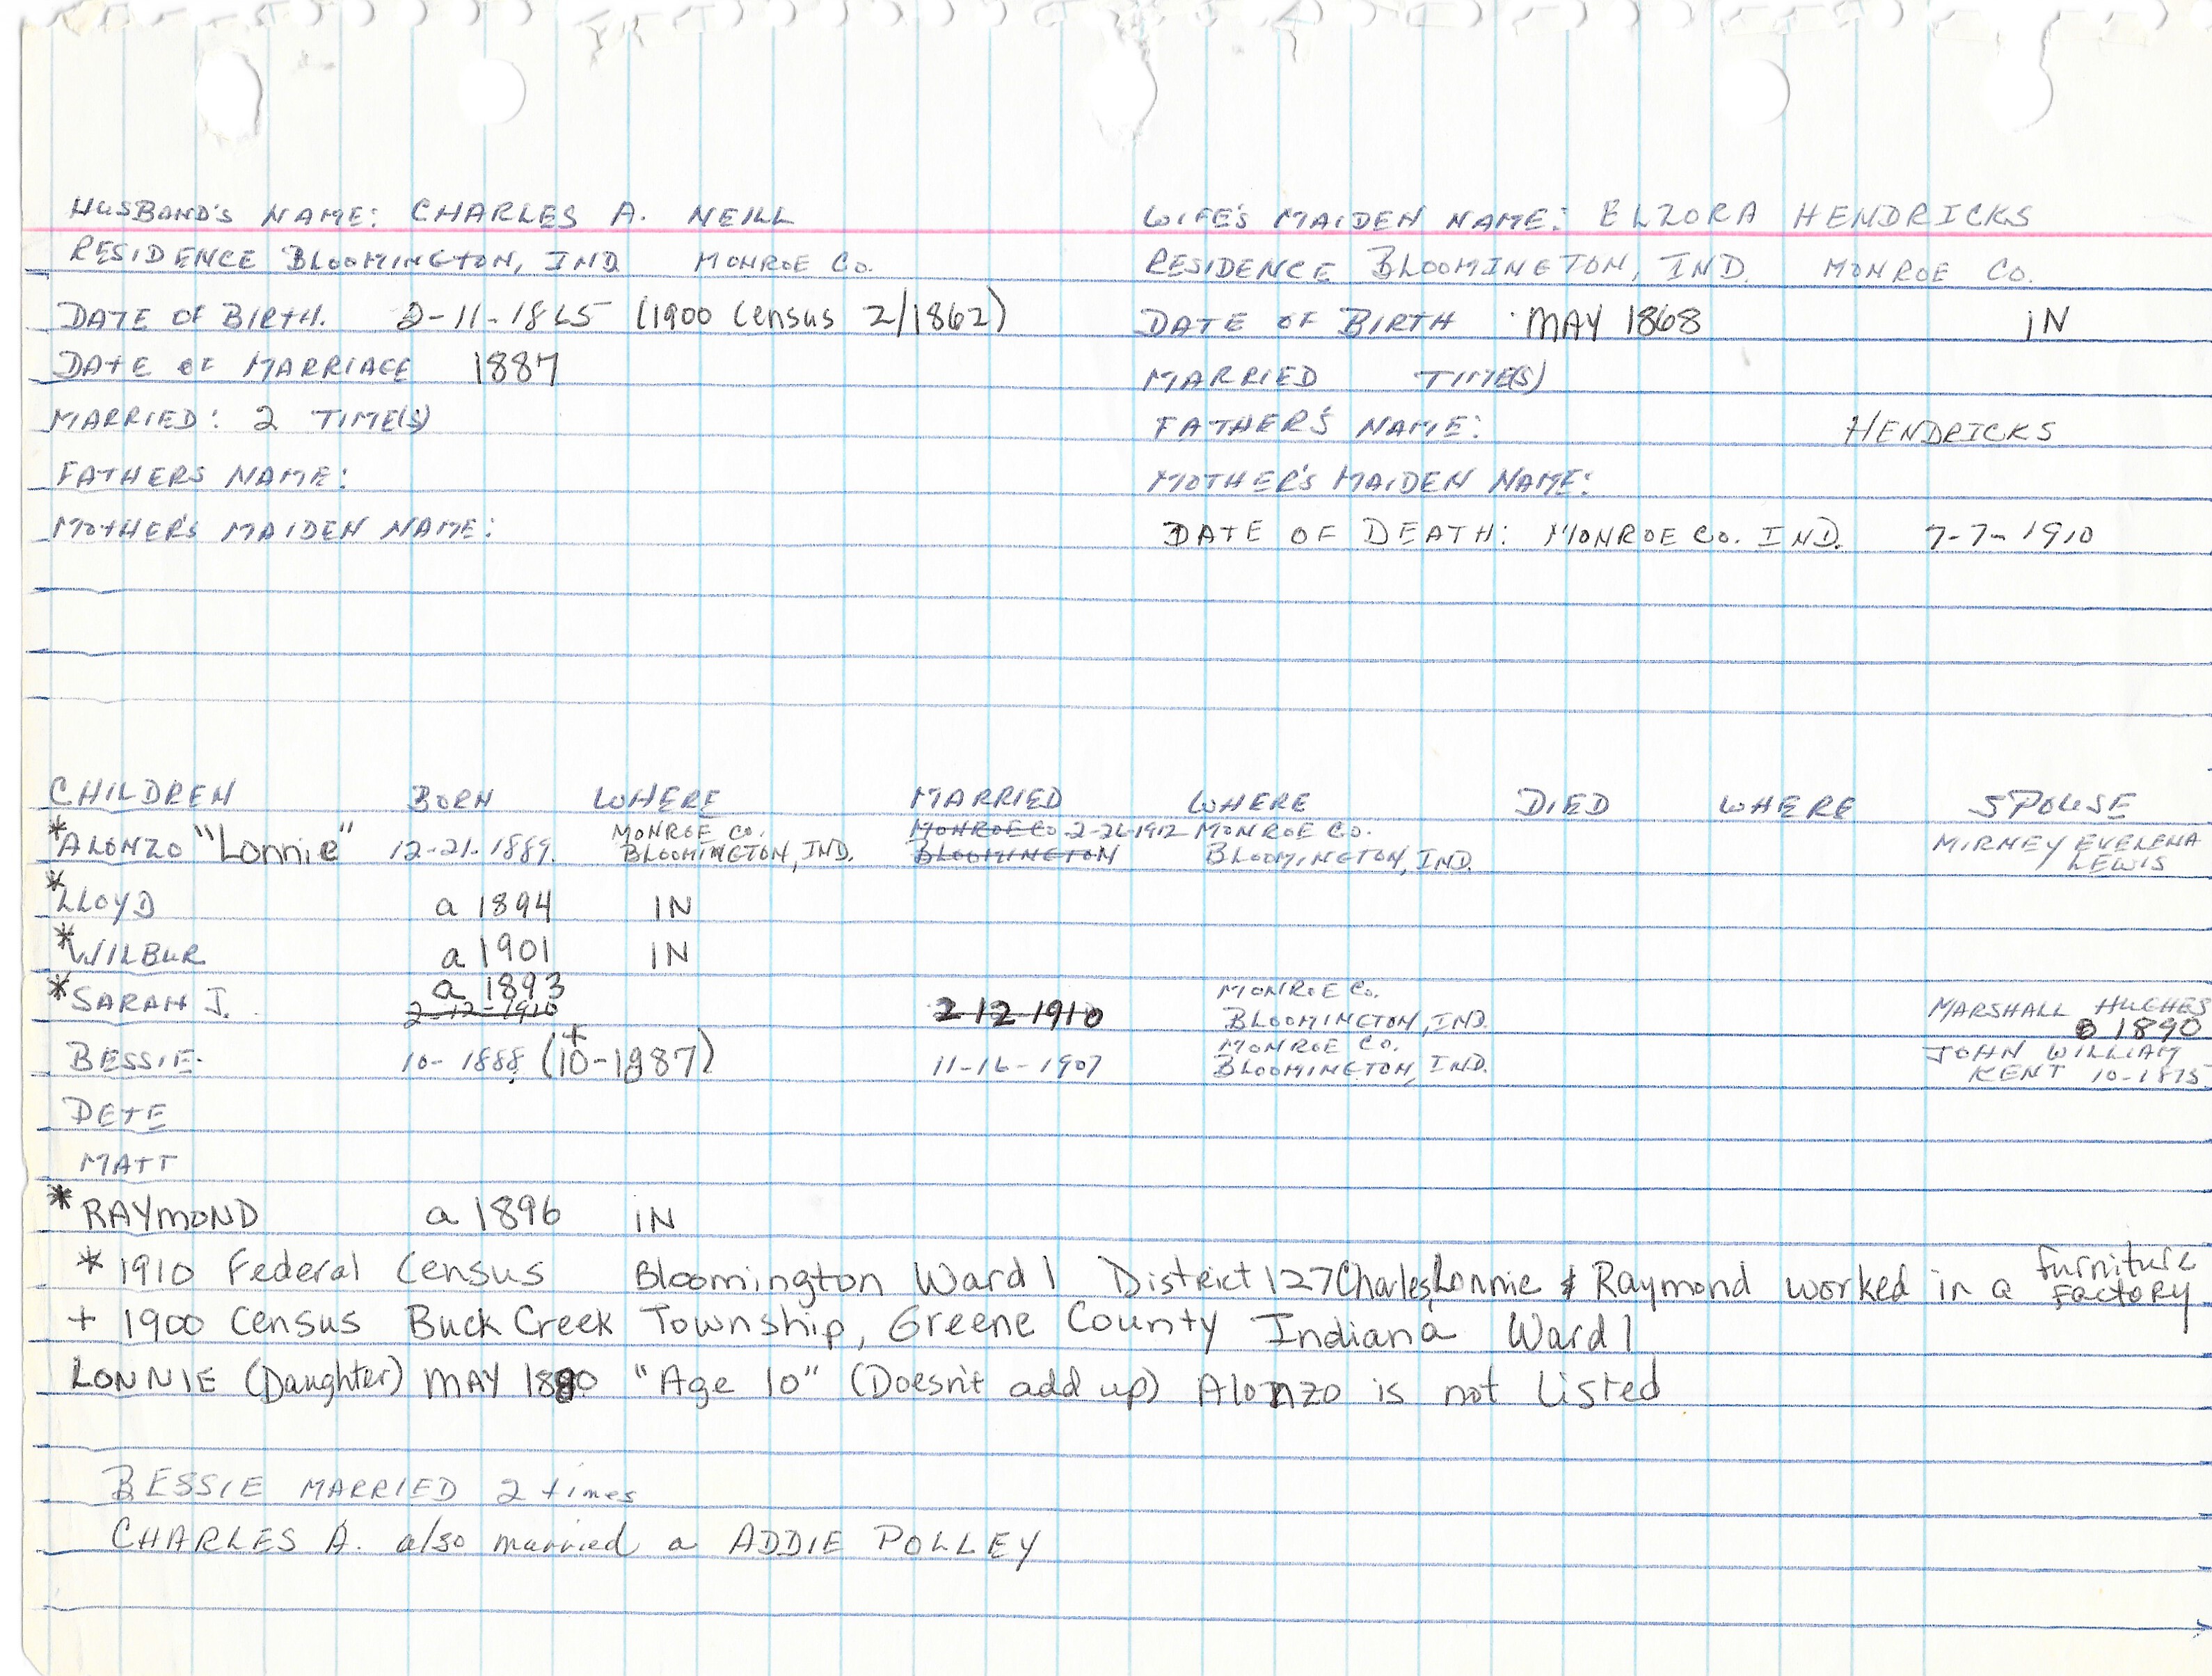 HUSBAND'S NAME: CHARLES A. NEILL
RESIDENCE BLOOMINGTON, IND MONROE CO.
DATE OF BIRTH. 2-11-1865 (1900 Census 2/1862)
DATE OF MARRIAGE 1887
MARRIED: 2 TIME(S)
FATHERS NAME:
MOTHER'S MAIDEN NAME:
WIFE'S MAIDEN NAME: ELZORA HENDRICKS
RESIDENCE BLOOMINGTON, IND. MONROE CO.
DATE OF BIRTH MAY 1868 IN
MARRIED TIME(S)
FATHER'S NAME: HENDRICKS
MOTHER'S MAIDEN NAME:
DATE OF DEATH: MONROE CO. IND. 7-7-1910
CHILDREN BORN WHERE MARRIED WHERE DIED WHERE SPOUSE
MONROE CO. MONROE CO. 2-26-1912 MONROE CO. MIRNEY EVELENA
*ALONZO "Lonnie" 12-21-1889. BLOOMINGTON, IND. BLOOMINGTON BLOOMINGTON, IND. LEWIS
*LLOYD a 1894 IN
*WILBUR a 1901 IN
a 1893 MONROE CO. MARSHALL HUGHES
*SARAH J. 2-12-1910 2 12 1910 BLOOMINGTON, IND. 1890
MONROE CO. JOHN WILLIAM
BESSIE 10-1888 (+10-1887) 11-16-1907 BLOOMINGTON, IND. KENT 10-1875
DETE
MATT
*RAYMOND a 1896 IN
* 1910 Federal Census Bloomington Ward 1 District 127 Charles, Lonnie & Raymond worked in a furniture factory
+ 1900 Census Buck Creek Township, Greene County Indiana Ward 1
LONNIE (Daughter) MAY 1880 "Age 10" (Doesn't add up) Alonzo is not listed
BESSIE MARRIED 2 times
CHARLES A. also married a ADDIE POLLEY